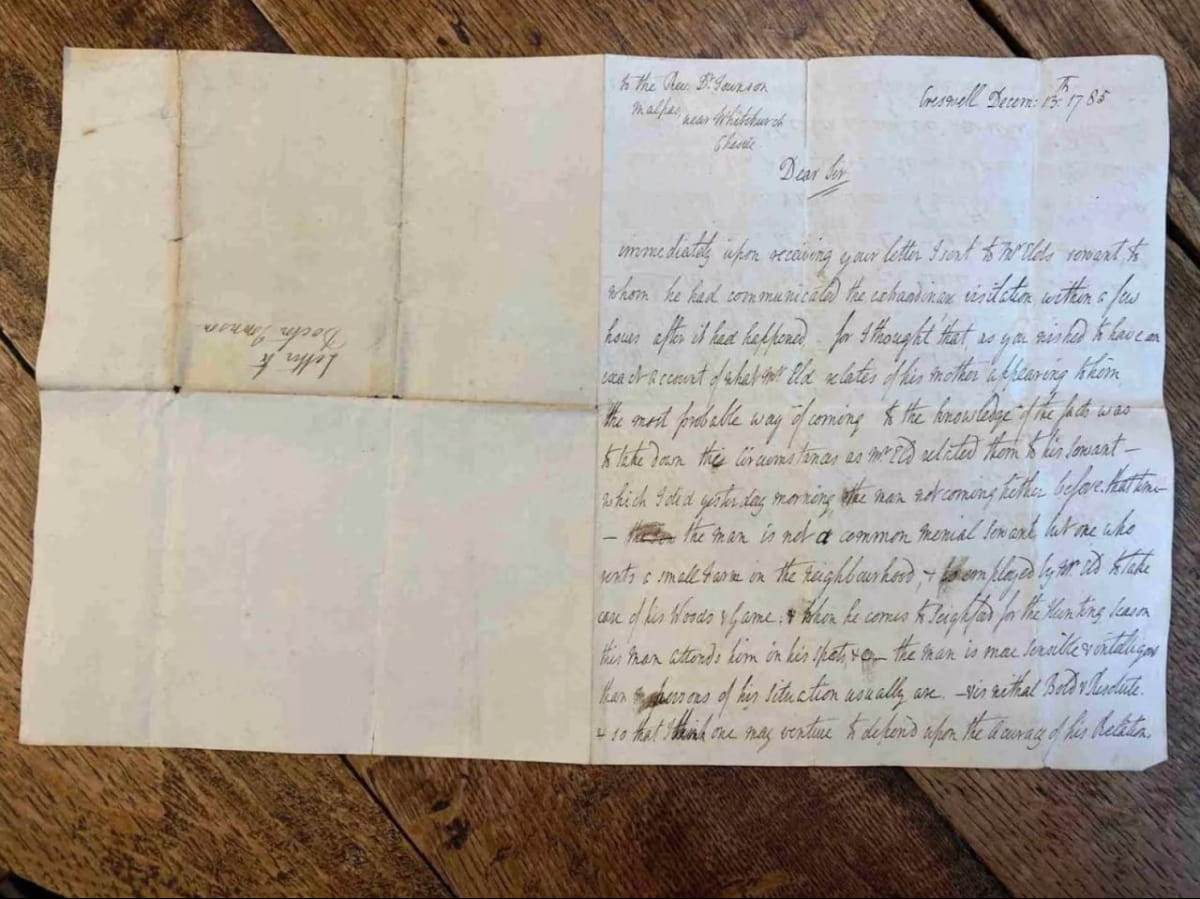 to the Rev. Dr. Townson
Malpas, near Whitchurch
Cheshire
Creswell Decem: 13th: 1785
Dear Sir
immediately upon receiving your letter I sent to Mr Elds servant, to
whom he had communicated the extraordinary visitation within a few
hours after it had happened. for I thought that as you wished to have an
exact account of what Mr Eld relates of his mother appearing to him
the most probable way of coming to the knowledge of the facts was
to take down the circumstances as Mr Eld related them to his servant —
which I did yesterday morning the man not coming hether before that time
— the man is not a common menial servant but one who
rents a small Farm in the neighbourhood, & is employed by Mr Eld to take
care of his Woods & Game. & when he comes to Seighford for the Hunting Season
this man attends him in his sports, & — the man is more sensible & intelligent
than persons of his situation usually are. — & is withal Bold & Resolute.
& so that I think one may venture to depend upon the accuracy of his Relation
Letter to
Doctor Townson